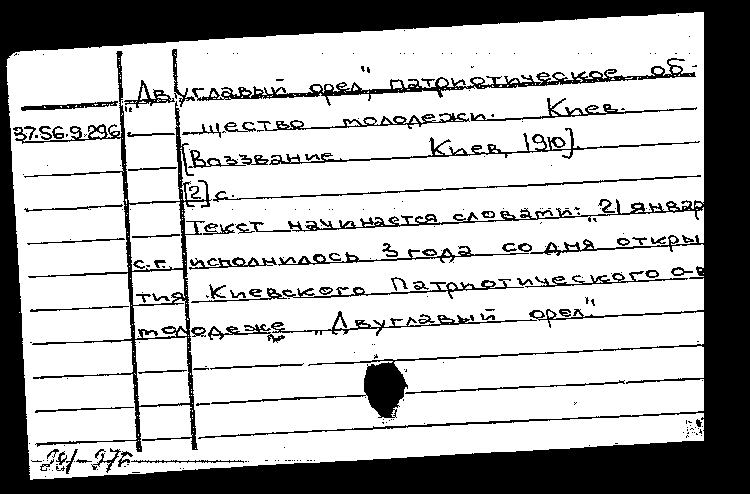 „Двуглавый орел“, патриотическое об-
37.56.9.296 щество молодежи. Киев.
[Воззвание. Киев, 1910].
[2] с.
Текст начинается словами: „21 январ
с.г. исполнилось 3 года со дня откры
тия Киевского Патриотического о-в
молодеже „Двуглавый орел“.
281-276